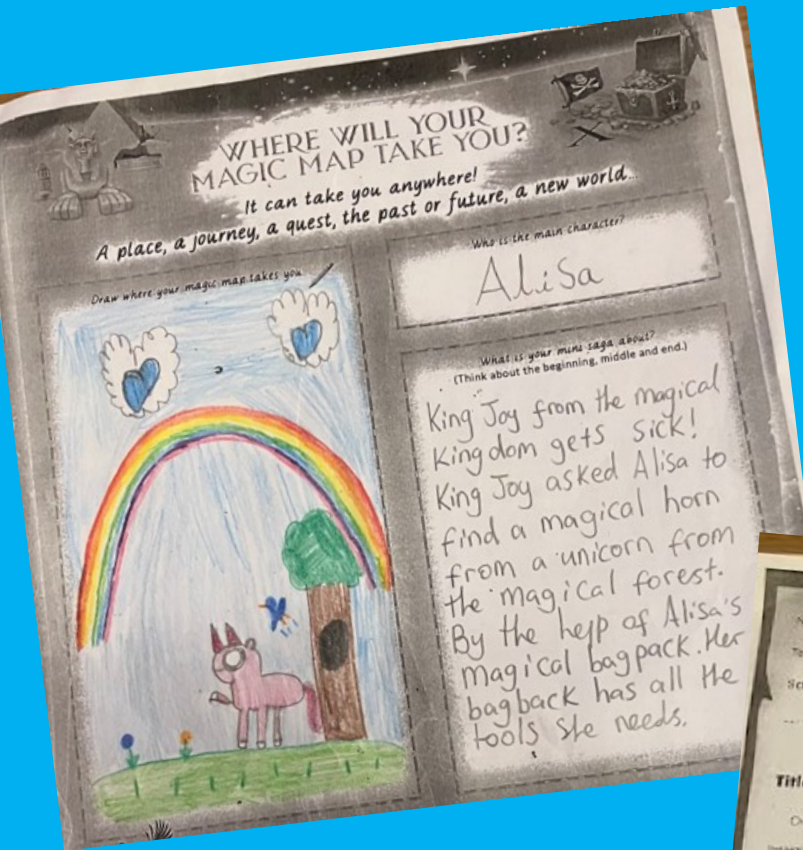 WHERE WILL YOUR
MAGIC MAP TAKE YOU?
It can take you anywhere!
A place, a journey, a quest, the past or future, a new world...
Draw where your magic map takes you
Who is the main character?
AliSa
What is your mini saga about?
(Think about the beginning, middle and end.)
King Joy from the magical
Kingdom gets sick!
King Joy asked Alisa to
find a magical horn
from a unicorn from
the magical forest.
By the help of Alisa's
magical bagpack. Her
bagback has all the
tools she needs.